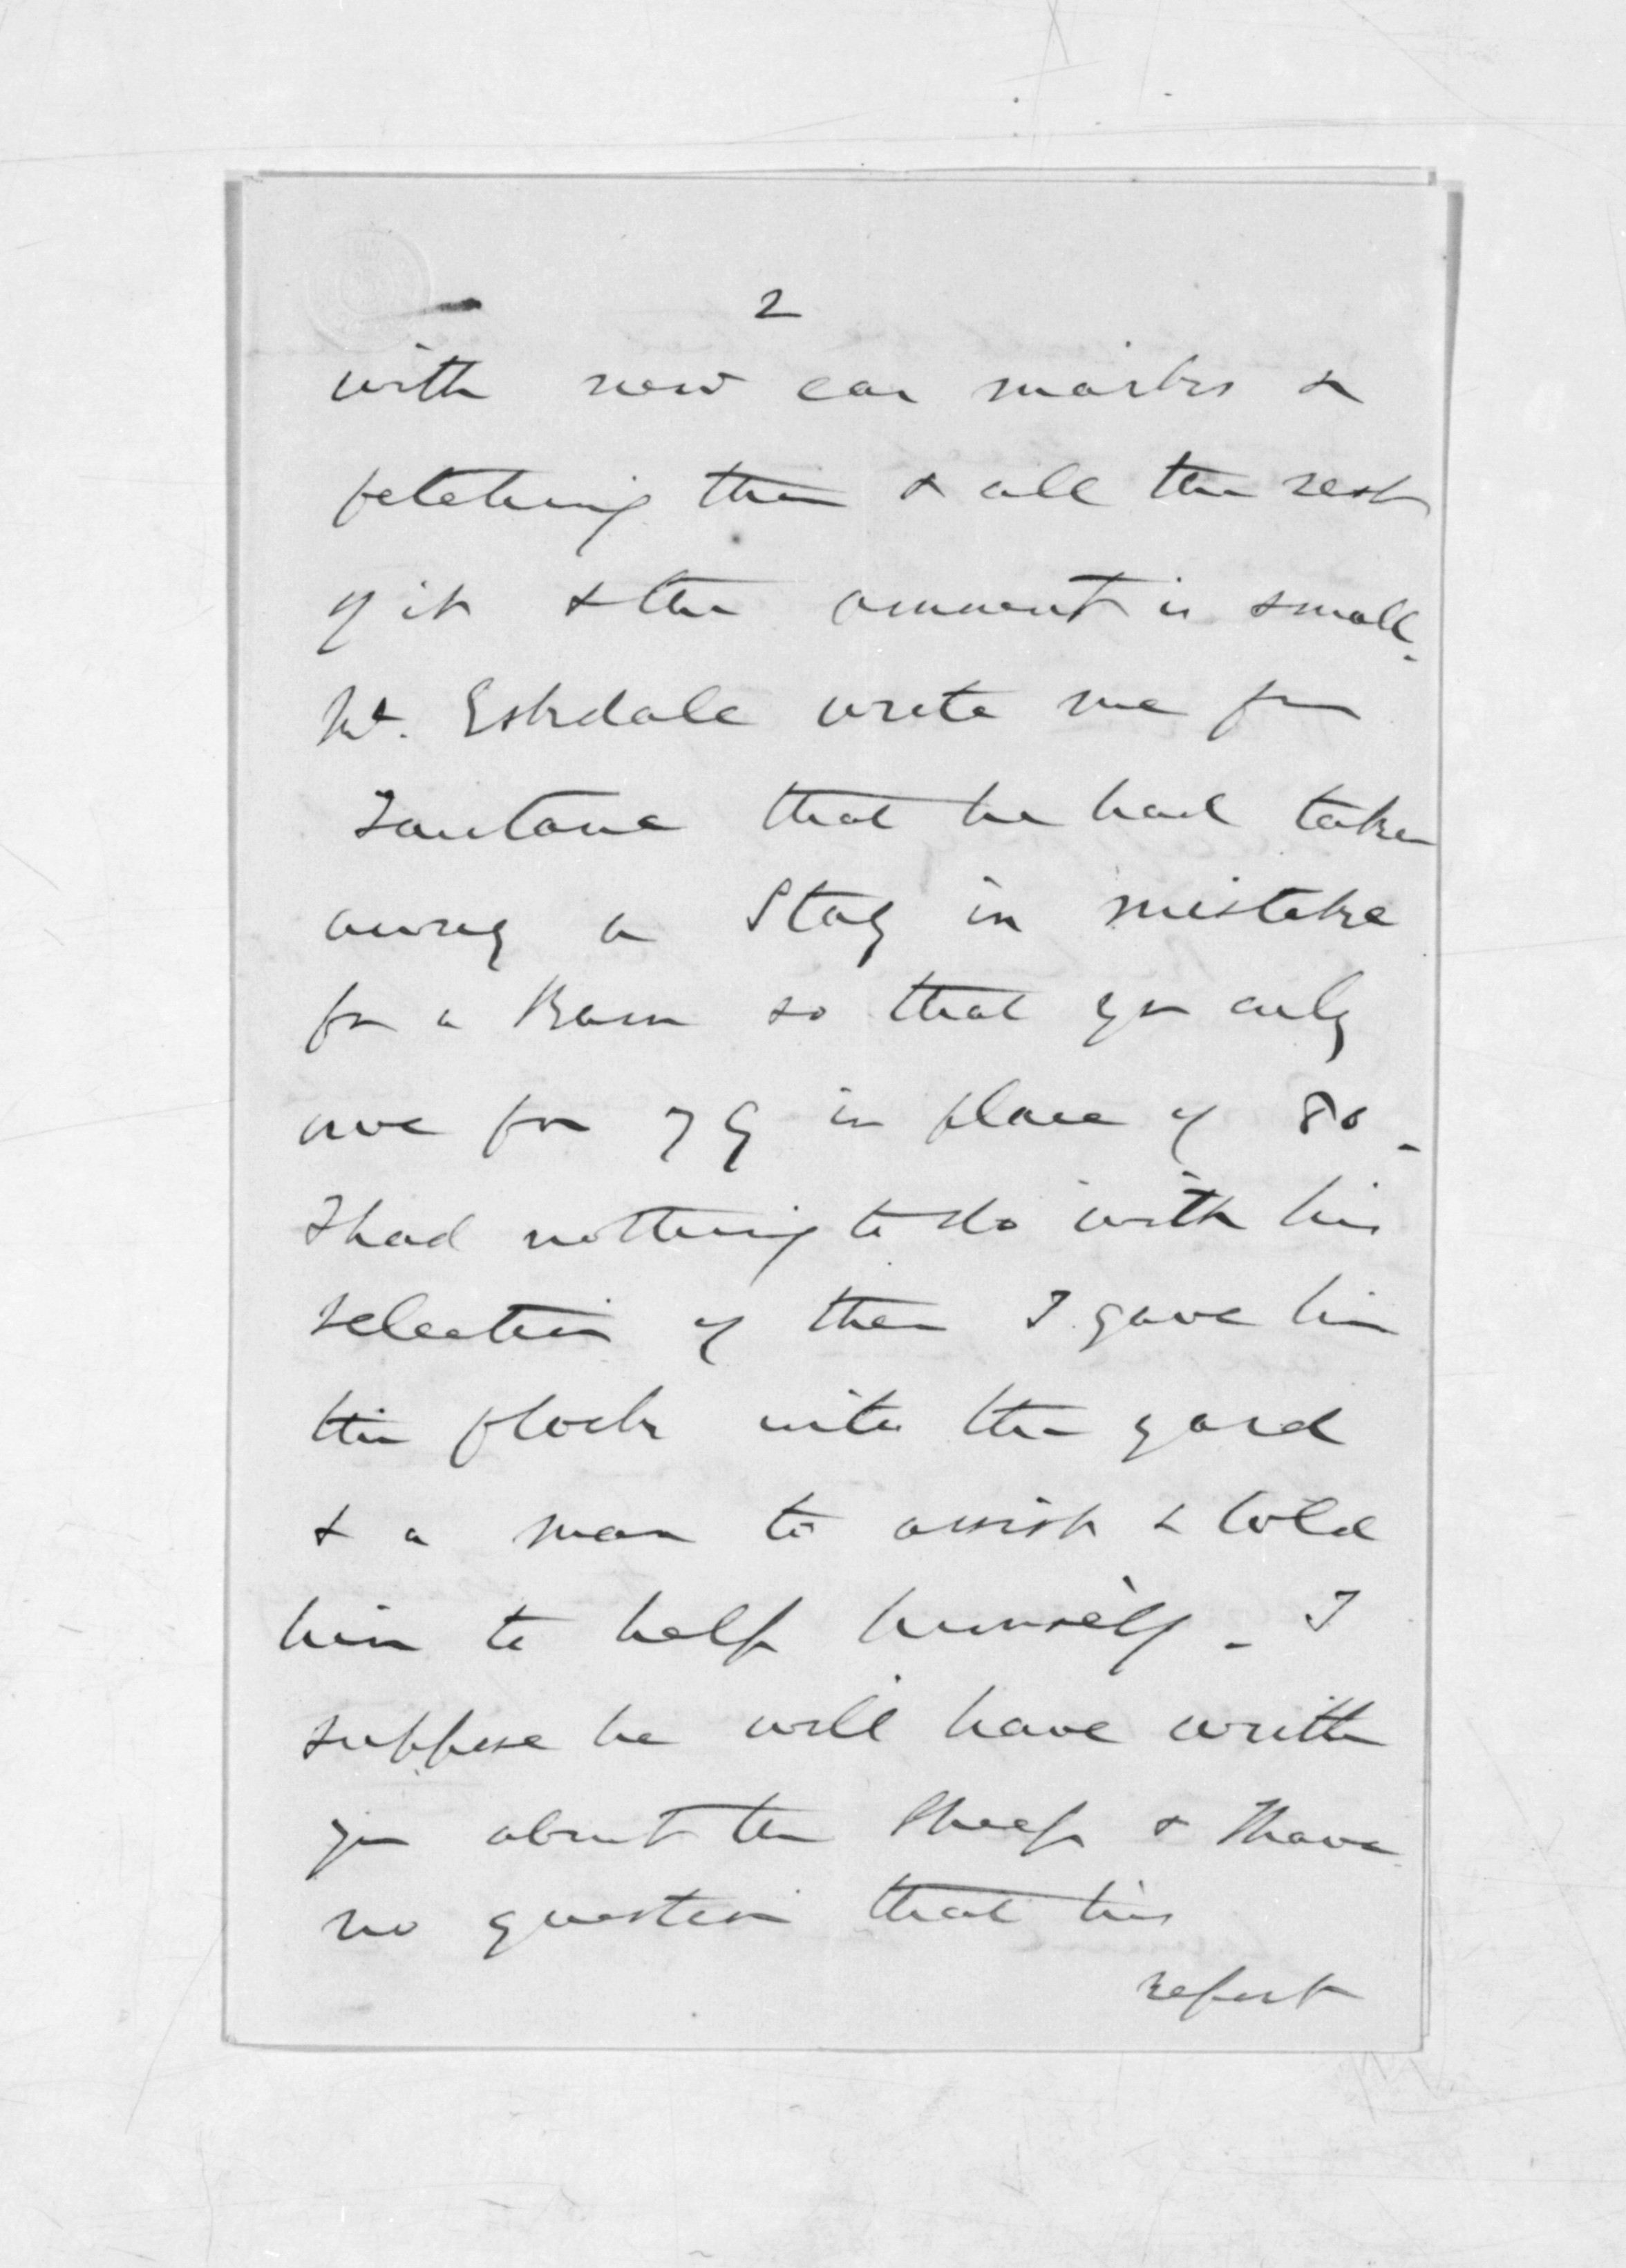 2
with new ear marks &
fetching them & all the rest
of it & the amount is small.
Mr. Eskdale wrote me from
that he had taken
away a Stag in mistake
for a Ram so that you only
owe for 79 in place of 80 -
I had nothing to do with his
selection of them I gave him
the flock into the yard
& a man to assist & told
him to help himself - I
suppose he will have written
you about the Sheep & I have
no question that his
report